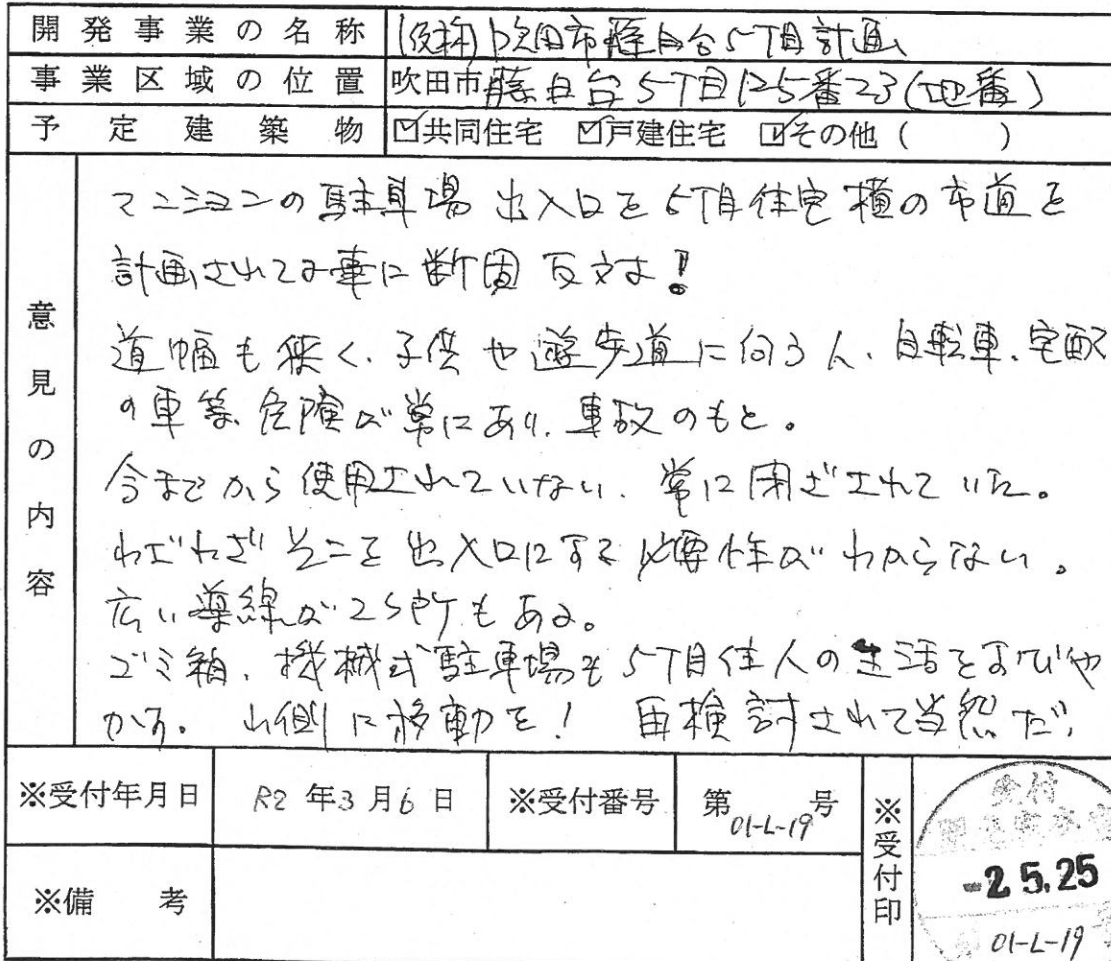 開発事業の名称 (仮称)吹田市藤白台5丁目計画
事業区域の位置 吹田市藤白台5丁目125番23(地番)
予定建築物 ☑共同住宅 ☑戸建住宅 ☑その他( )
意見の内容
マンションの駐車場 出入口を5丁目住宅横の市道を
計画されてる事に断固反対!
道幅も狭く、子供や遊歩道に向う人、自転車、宅配
の車等、危険が常にあり、事故のもと。
今までから使用されていない、常に閉ざされていた。
わざわざそこを出入口にする必要性がわからない。
広い導線が2ヶ所もある。
ゴミ箱、機械式駐車場も5丁目住人の生活をおびや
かす。 山側に移動を! 再検討されて当然だ!
※受付年月日 R2年3月6日 ※受付番号 第01-L-19号
※受付印
受付
-2.5.25
01-L-19
※備考